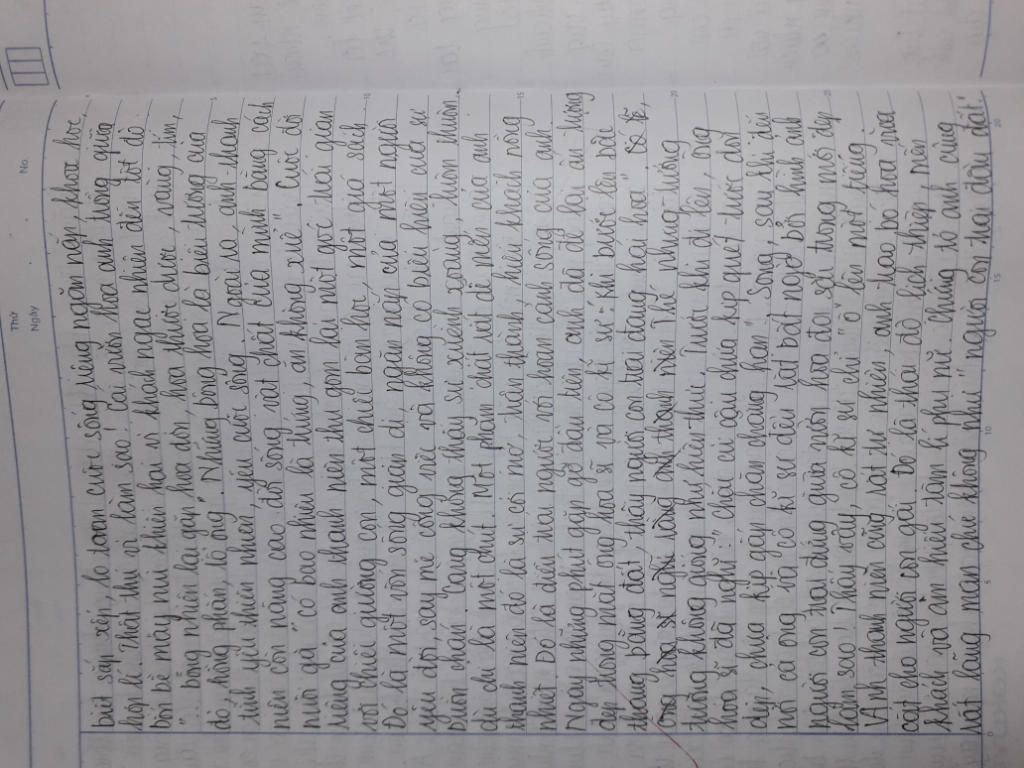 Thứ
Ngày
No.
biết sắp xếp, lo toan cuộc sống riêng ngăn nắp, khoa học,
hợp lí. Thật thú vị làm sao! Cái vườn hoa anh trồng giữa
bốn bề mây núi khiến hai vị khách ngạc nhiên đến tột độ
"bỗng nhiên lại gặp hoa dơn, hoa thược dược, vàng, tím,
đỏ, hồng phấn, tổ ong". Những bông hoa là biểu tượng của
tình yêu thiên nhiên, yêu cuộc sống. Ngoài ra, anh thanh
niên còn nâng cao đời sống vật chất của mình bằng cách
nuôi gà "có bao nhiêu là trứng, ăn không xuể". Cuộc đời
riêng của anh thanh niên thu gọn lại một góc trái gian
với chiếc giường con, một chiếc bàn học, một giá sách.
Đó là một nếp sống giản dị, ngăn nắp của một người
yêu đời, say mê công việc và không có biểu hiện của sự
buồn chán. Càng không thấy sự xuềnh xoàng, luôm thuôm
dù chỉ là một chút. Một phẩm chất rất dễ mến của anh
thanh niên đó là sự cởi mở, chân thành hiếu khách nồng
nhiệt. Đó là điều trái ngược với hoàn cảnh sống của anh.
Ngay những phút gặp gỡ đầu tiên anh đã để lại ấn tượng
đẹp trong mắt ông họa sĩ và cô kĩ sư - khi bước lên bậc
thang bằng đất, thấy người con trai đang hái hoa".
tưởng không giống như hiện thực. Trước khi đi lên, ông
họa sĩ đã nghĩ: "cháu cu cậu chưa kịp quét tước dọn
dẹp, chưa kịp gấp chăn chẳng hạn". Song, sau khi đến
nơi cả ông và cô kĩ sư đều rất bất ngờ bởi hình ảnh
người con trai đứng giữa vườn hoa đại sắc trông nó đẹp
làm sao! Thấy vậy, cô kĩ sư chỉ "ô" lên một tiếng.
Và anh thanh niên cũng rất tự nhiên, anh trao bó hoa vừa
cắt cho người con gái. Đó là thái độ lịch thiệp, mến
khách và am hiểu tâm lí phụ nữ. Chứng tỏ anh cũng
rất lãng mạn chứ không phải "người con trai đầu đất".
5
10
15
20